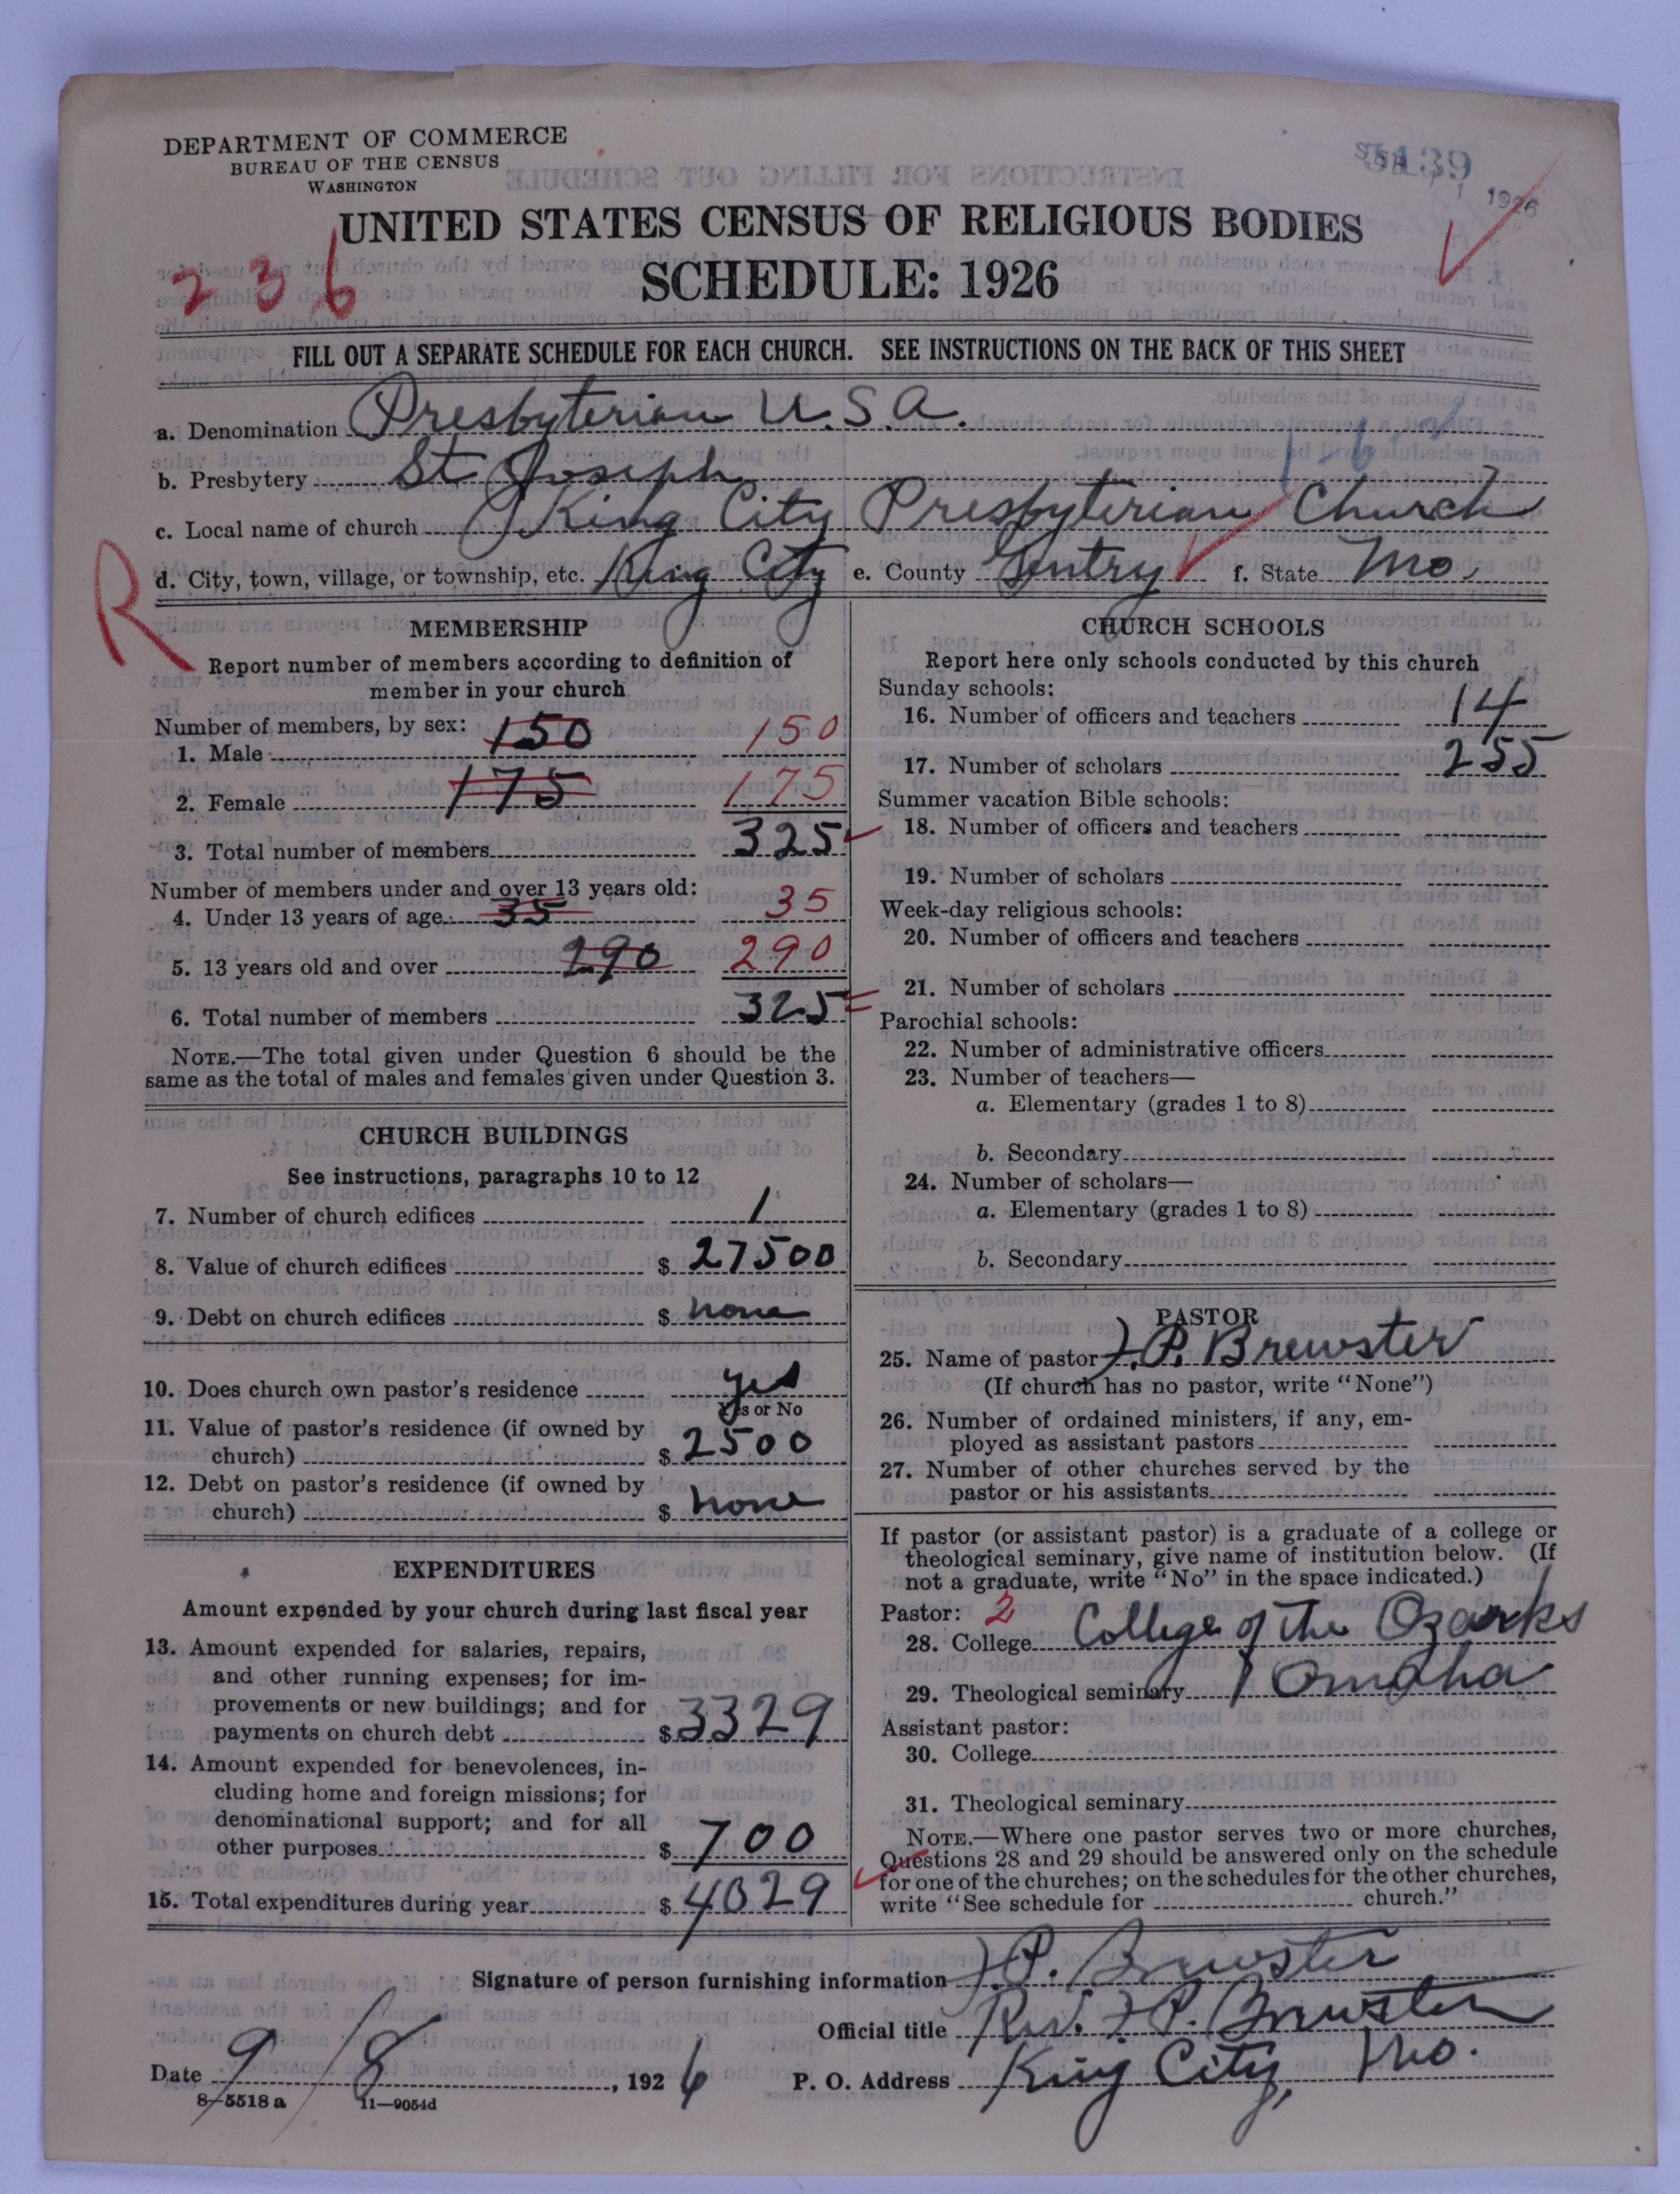 DEPARTMENT OF COMMERCE
BUREAU OF THE CENSUS
WASHINGTON
5139
1926
UNITED STATES CENSUS OF RELIGIOUS BODIES
236
SCHEDULE: 1926
FILL OUT A SEPARATE SCHEDULE FOR EACH CHURCH. SEE INSTRUCTIONS ON THE BACK OF THIS SHEET
a. Denomination Presbyterian U.S.A.
b. Presbytery St Joseph
c. Local name of church King City Presbyterian Church
d. City, town, village, or township, etc. King City e. County Gentry f. State Mo.
R
MEMBERSHIP
Report number of members according to definition of
member in your church
Number of members, by sex:
1. Male 150 150
2. Female 175 175
3. Total number of members 325
Number of members under and over 13 years old:
4. Under 13 years of age 35 35
5. 13 years old and over 290 290
6. Total number of members 325
NOTE.—The total given under Question 6 should be the
same as the total of males and females given under Question 3.
CHURCH BUILDINGS
See instructions, paragraphs 10 to 12
7. Number of church edifices 1
8. Value of church edifices $ 27500
9. Debt on church edifices $ none
10. Does church own pastor's residence yes
Yes or No
11. Value of pastor's residence (if owned by
church) $ 2500
12. Debt on pastor's residence (if owned by
church) $ none
EXPENDITURES
Amount expended by your church during last fiscal year
13. Amount expended for salaries, repairs,
and other running expenses; for im-
provements or new buildings; and for
payments on church debt $ 3329
14. Amount expended for benevolences, in-
cluding home and foreign missions; for
denominational support; and for all
other purposes $ 700
15. Total expenditures during year $ 4029
CHURCH SCHOOLS
Report here only schools conducted by this church
Sunday schools:
16. Number of officers and teachers 14
17. Number of scholars 255
Summer vacation Bible schools:
18. Number of officers and teachers
19. Number of scholars
Week-day religious schools:
20. Number of officers and teachers
21. Number of scholars
Parochial schools:
22. Number of administrative officers
23. Number of teachers—
a. Elementary (grades 1 to 8)
b. Secondary
24. Number of scholars—
a. Elementary (grades 1 to 8)
b. Secondary
PASTOR
25. Name of pastor J.P. Brewster
(If church has no pastor, write "None")
26. Number of ordained ministers, if any, em-
ployed as assistant pastors
27. Number of other churches served by the
pastor or his assistants
If pastor (or assistant pastor) is a graduate of a college or
theological seminary, give name of institution below. (If
not a graduate, write "No" in the space indicated.)
Pastor: 2
28. College College of the Ozarks
29. Theological seminary Omaha
Assistant pastor:
30. College
31. Theological seminary
NOTE.—Where one pastor serves two or more churches,
Questions 28 and 29 should be answered only on the schedule
for one of the churches; on the schedules for the other churches,
write "See schedule for church."
Signature of person furnishing information J.P. Brewster
Official title Rev. J.P. Brewster
Date 9/8, 1926 P. O. Address King City, Mo.
8—5518 a 11—9054d